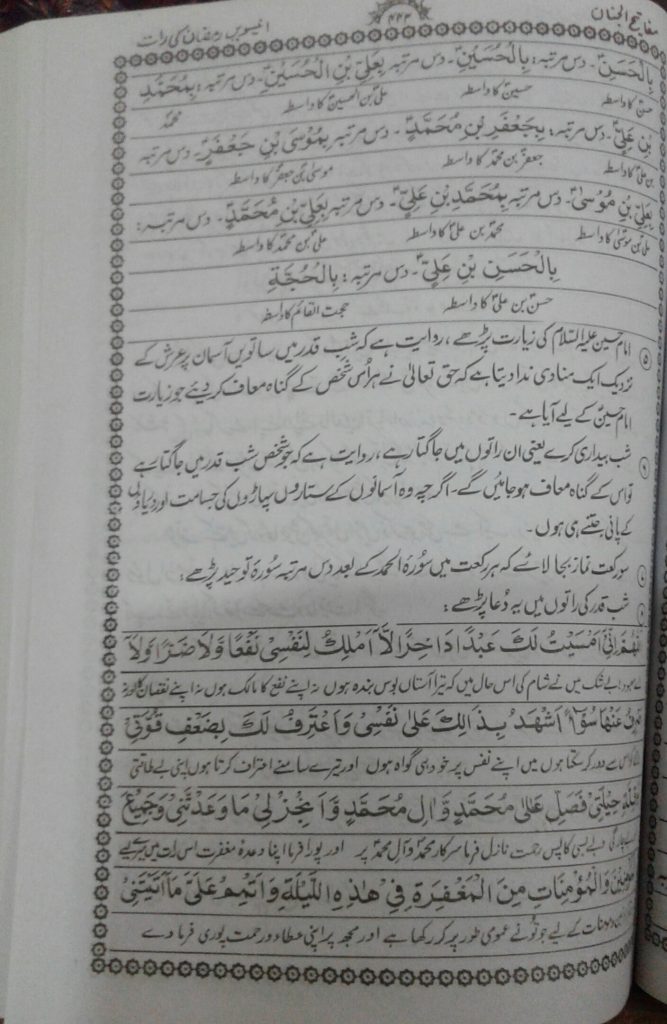 مفاتیح الجنان ۴۴۳ انیسویں رمضان کی رات
بِالْحَسَنِ۔ دس مرتبہ: بِالْحُسَیْنِ۔ دس مرتبہ بِعَلِیِّ بْنِ الْحُسَیْنِ۔ دس مرتبہ: بِمُحَمَّدِ
حسنؑ کا واسطہ حسینؑ کا واسطہ علیؑ بن الحسینؑ کا واسطہ محمدؑ
بْنِ عَلِیٍّ۔ دس مرتبہ: بِجَعْفَرِ بْنِ مُحَمَّدٍ۔ دس مرتبہ بِمُوْسَی بْنِ جَعْفَرٍ۔ دس مرتبہ
بن علیؑ کا واسطہ جعفرؑ بن محمدؑ کا واسطہ موسیٰؑ بن جعفرؑ کا واسطہ
بِعَلِیِّ بْنِ مُوْسٰی۔ دس مرتبہ بِمُحَمَّدِ بْنِ عَلِیٍّ۔ دس مرتبہ بِعَلِیِّ بْنِ مُحَمَّدٍ۔ دس مرتبہ:
علیؑ بن موسیٰؑ کا واسطہ محمدؑ بن علیؑ کا واسطہ علیؑ بن محمدؑ کا واسطہ
بِالْحَسَنِ بْنِ عَلِیٍّ۔ دس مرتبہ: بِالْحُجَّةِ
حسنؑ بن علیؑ کا واسطہ حجت القائمؑ کا واسطہ
۵ امام حسین علیہ السلام کی زیارت پڑھے، روایت ہے کہ شب قدر میں ساتویں آسمان پر عرش کے
نزدیک ایک منادی ندا دیتا ہے کہ حق تعالیٰ نے ہر اُس شخص کے گناہ معاف کر دیئے جو زیارت
امام حسینؑ کے لیے آیا ہے۔
۶ شب بیداری کرے یعنی ان راتوں میں جاگتا رہے، روایت ہے کہ جو شخص شب قدر میں جاگتا رہے
تو اس کے گناہ معاف ہو جائیں گے۔ اگرچہ وہ آسمانوں کے ستاروں پہاڑوں کی جسامت اور دریاؤں
کے پانی جتنے ہی ہوں۔
سو رکعت نماز بجا لائے کہ ہر رکعت میں سورۂ الحمد کے بعد دس مرتبہ سورۂ توحید پڑھے:
شب قدر کی راتوں میں یہ دُعا پڑھے:
اَللّٰھُمَّ اِنِّیْ اَمْسَیْتُ لَكَ عَبْدًا دَاخِرًا لَّا اَمْلِكُ لِنَفْسِیْ نَفْعًا وَّلَا ضَرًّا وَّلَا
بے شک میں نے شام کی اس حال میں کہ تیرا آستاں بوس بندہ ہوں نہ اپنے نفع کا مالک ہوں نہ اپنے نقصان کا اور نہ
عَنْهَا سُوْٓءًا اَشْهَدُ بِذَالِكَ عَلٰی نَفْسِیْ وَاَعْتَرِفُ لَكَ بِضَعْفِ قُوَّتِیْ
دور کر سکتا ہوں میں اپنے نفس پر خود ہی گواہ ہوں اور تیرے سامنے اعتراف کرتا ہوں اپنی بے طاقتی
حِیْلَتِیْ فَصَلِّ عَلٰی مُحَمَّدٍ وَّاٰلِ مُحَمَّدٍ وَّاَنْجِزْ لِیْ مَا وَعَدْتَّنِیْ وَجَمِیْعَ
بے بسی کا پس رحمت نازل فرما سرکار محمدؐ و آل محمدؐ پر اور پورا فرما اپنا وعدۂ مغفرت اس رات میں میرے لیے
وَالْمُؤْمِنَاتِ مِنَ الْمَغْفِرَةِ فِیْ هٰذِهِ اللَّیْلَةِ وَاَتْمِمْ عَلَیَّ مَا اٰتَیْتَنِیْ
مومنات کے لیے جو تو نے عمومی طور پر کر رکھا ہے اور مجھ پر اپنی عطاء و رحمت پوری فرما دے